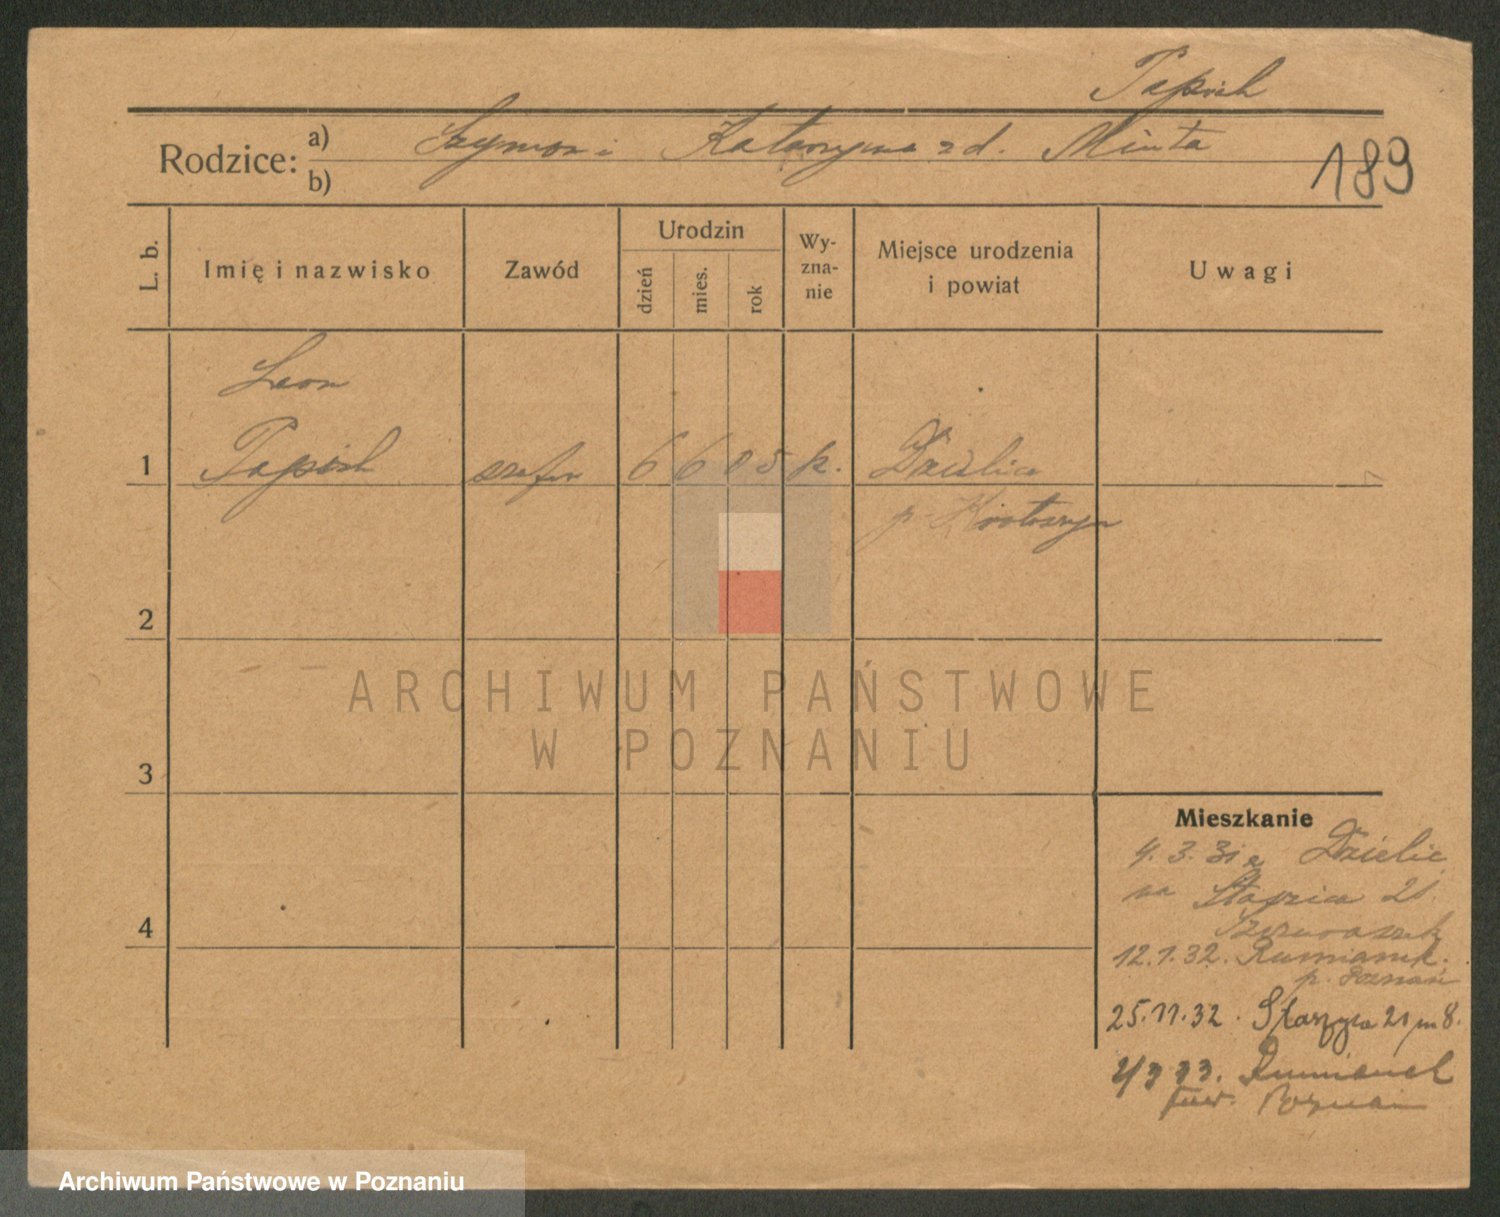 Papich
Rodzice: a) Szymon i Katarzyna z d. Minta
b)
189
L. b.
Imię i nazwisko
Zawód
Urodzin
dzień
mies.
rok
Wy-
zna-
nie
Miejsce urodzenia
i powiat
Uwagi
Leon
1 szofer 6 6 05 k. Dzielice
p. Krotoszyn
2
ARCHIWUM PAŃSTWOWE
W POZNANIU
3
Mieszkanie
4. 3. 31 z Dzielic
na Staszica 21.
4
12.1.32. Rumianek.
p. Poznań
25.11.32. Staszyca 21 m 8.
Rumianek
Poznań
Archiwum Państwowe w Poznaniu